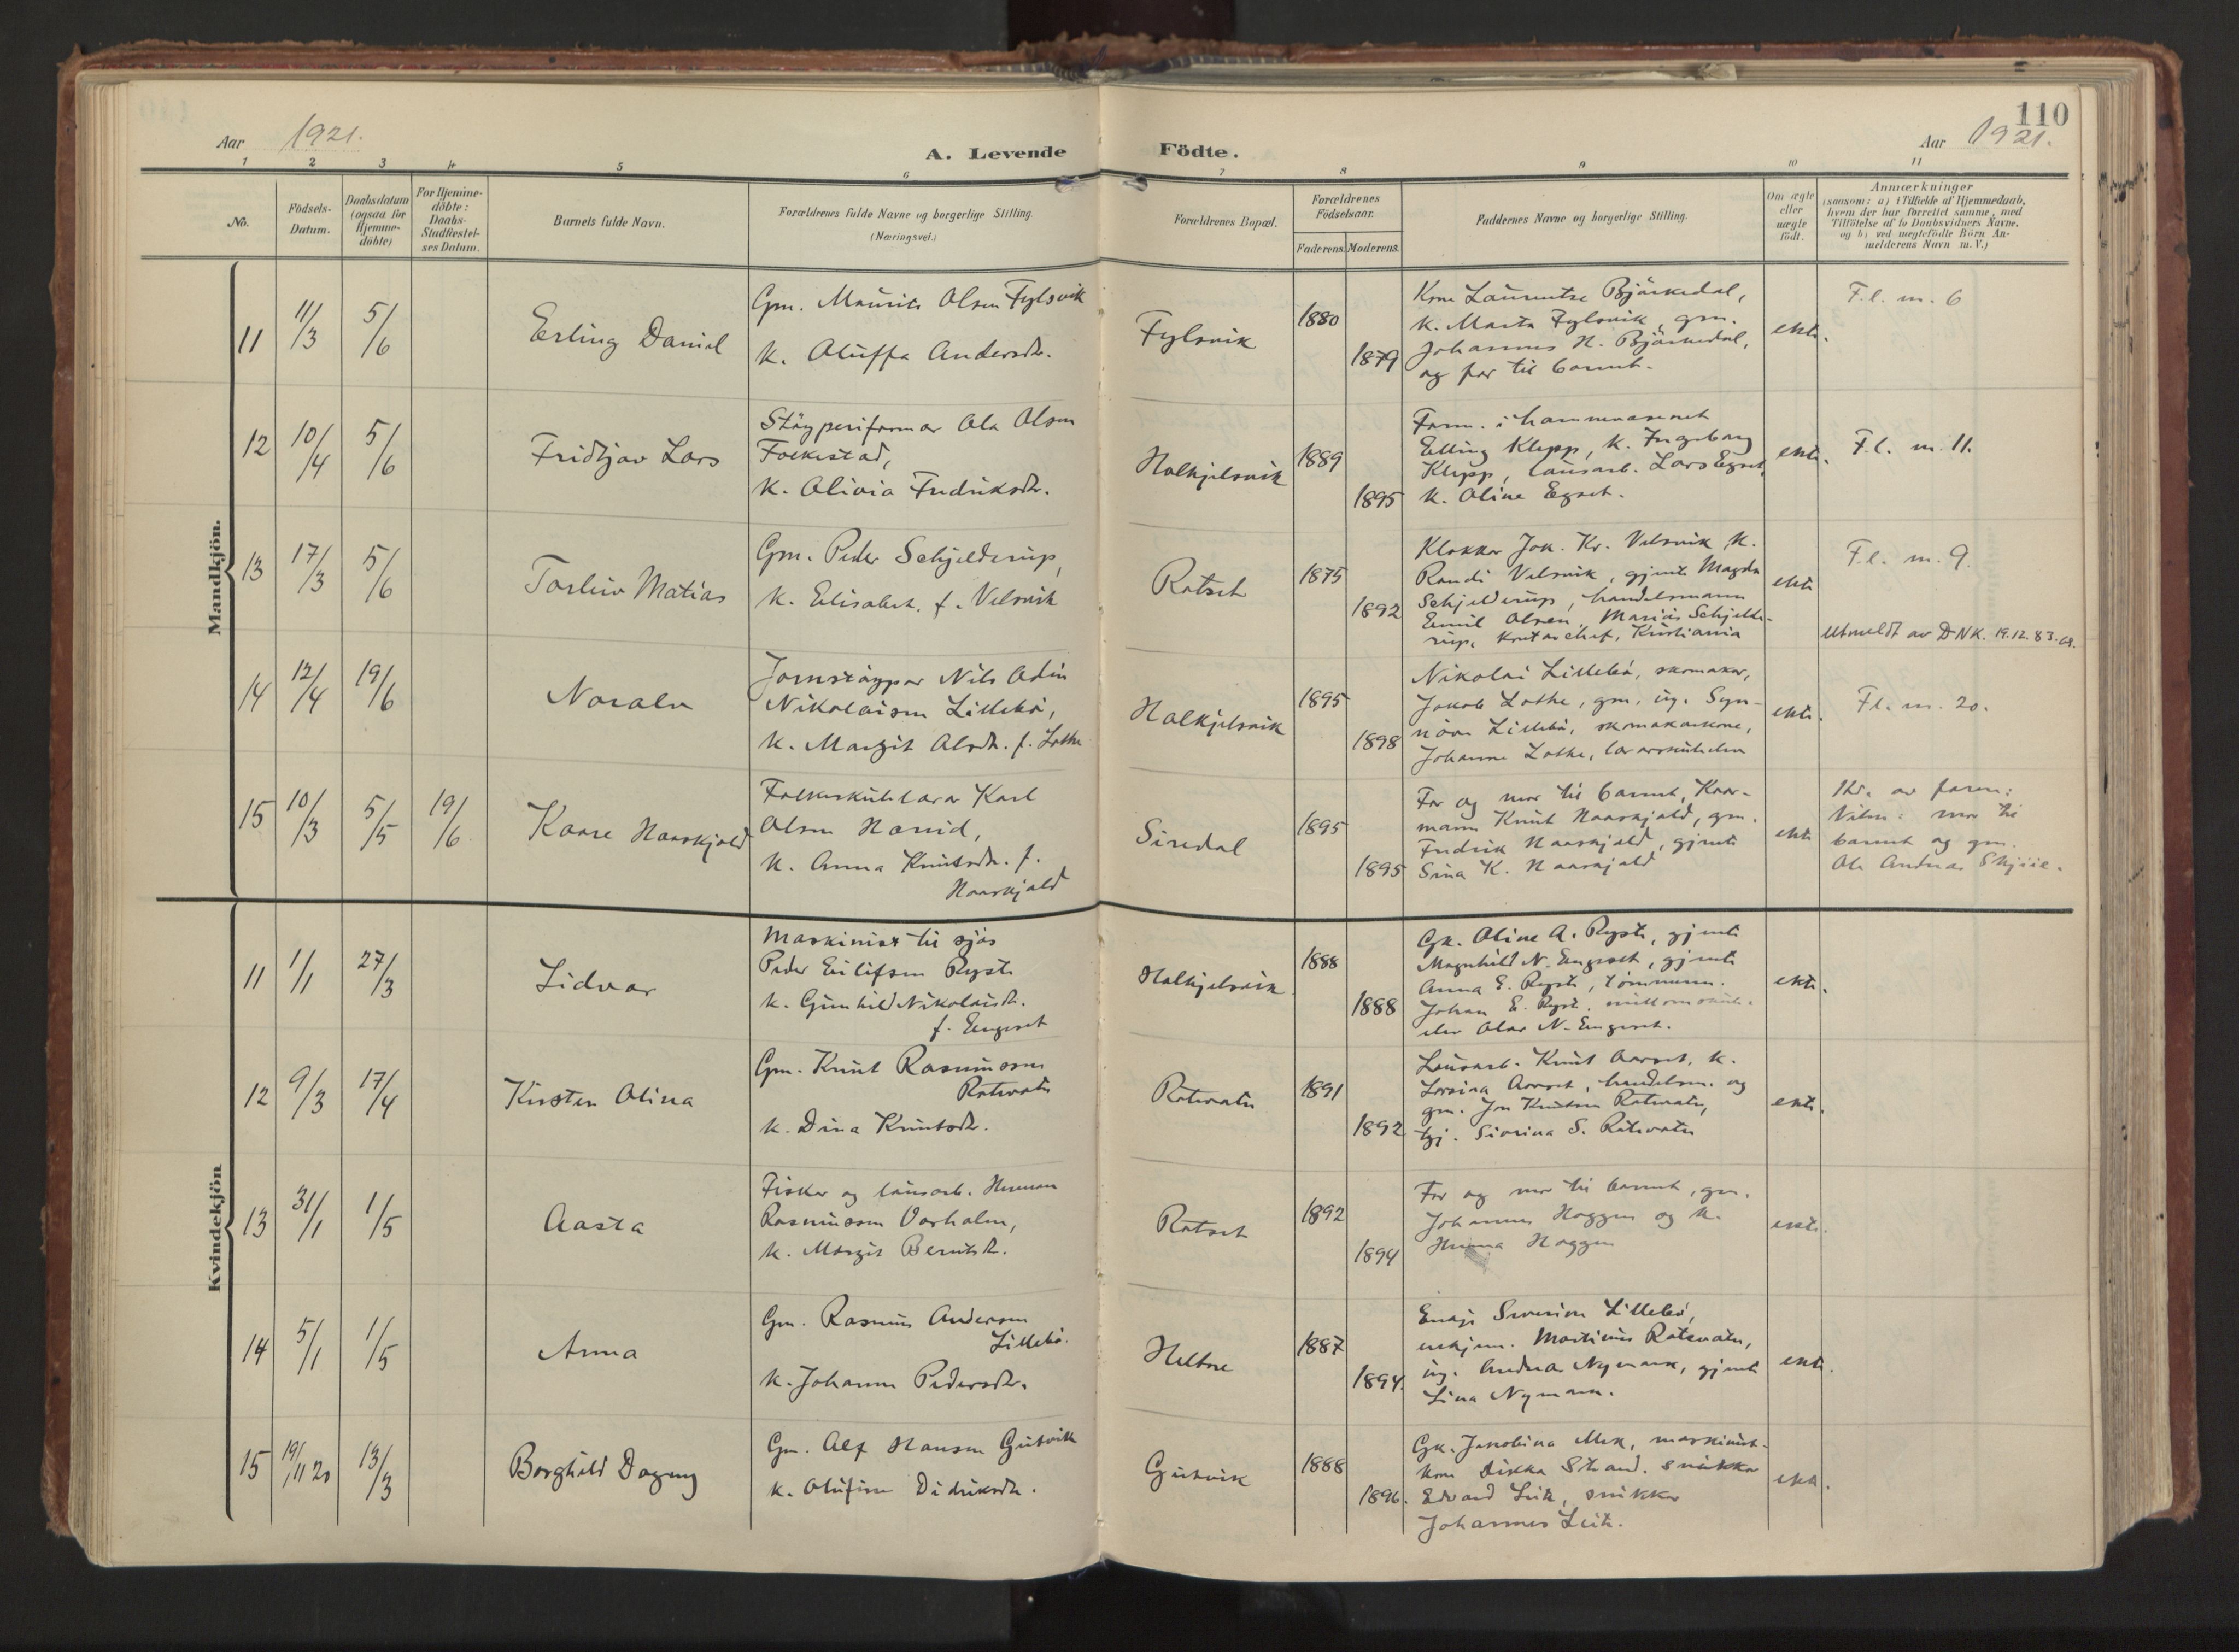 110
Aar 1921.
A. Levende Födte.
Aar 1921.
1 2 3 4 5 6 7 8 9 10 11
No.
Födsels-
Datum.
Daabsdatum
(ogsaa for
Hjemme-
döbte)
For Hjemme-
döbte:
Daabs-
Stadfæstel-
ses Datum.
Barnets fulde Navn.
Forældrenes fulde Navne og borgerlige Stilling.
(Næringsvei.)
Forældrenes Bopæl.
Forældrenes
Födselsaar.
Faderens. Moderens.
Faddernes Navne og borgerlige Stilling.
Om ægte
eller
uægte
födt.
Anmærkninger
(saasom: a) i Tilfælde af Hjemmedaab,
hvem der har forrettet samme, med
Tilföielse af to Daabsvidners Navne.
og b) ved uægtefödte Börn An-
melderens Navn m. V.)
Mandkjön.
11
11/3
5/6
Erling Daniel
Gm. Maurits Olsen Fylsvik
K. Oluffa Andersdr.
Fylsvik
1880
1879
Kone Laurentse Björkedal,
K. Marta Fylsvik, gm.
Johannes H. Björkedal,
og far til barnet.
ekte.
F.l. m. 6
12
10/4
5/6
Fridtjov Lars
Stöyperiformar Ola Olsen
Folkestad,
K. Olivia Fredriksdr.
Halkjelsvik
1889
1895
Form. i hamnevæsenet
Elling Klepp, K. Ingeborg
Klepp, lausarb. Lars Egset,
K. Oline Egset.
ekte.
F.l. m. 11.
13
17/3
5/6
Torleiv Matias
Gm. Peder Schjelderup,
K. Elisabet. f. Velsvik
Rotset
1875
1892
Klokkar Jon. Kr. Velsvik, K.
Randi Velsvik, gjente Magda
Schjelderup, handelsmann
Emil Olsen, Marius Schjelde-
rup, kontorchef, Kristiania
ekte
F.l. m. 9.
Utmeldt av DNK. 19.12.83.
14
12/4
19/6
Noralv
Jarnstöypar Nils Odin
Nikolaisen Lillebö,
K. Margit Olsdr. f. Lothe
Halkjelsvik
1895
1898
Nikolai Lillebö, skomakar,
Jakob Lothe, gm, ug. Syn-
növe Lillebö, skomakarkone,
Johanne Lothe, lærarskuleelev
ekte.
Fl. m. 20.
15
10/3
5/5
19/6
Kaare Haaskjold
Folkeskulelærar Karl
Olsen Hovid,
K. Anna Knutsdr. f.
Haaskjold
Siredal
1895
1895
Far og mor til barnet, Kaar-
mann Knut Haaskjold, gm.
Fredrik Haaskjold, gjente
Sina K. Haaskjold
ekte
Hd. av faren:
Vitne: mor til
barnet og gm.
Ole Andreas
Kvindekjön
11
1/1
27/3
Lidvar
Maskinist til sjös
Peder Eilifsen Ryste
K. Gunhild Nikolaisdr.
f. Engeset
Halkjelsvik
1888
1888
Gk. Oline A. Ryste, gjente
Magnhild N. Engeset, gjente
Anna E. Ryste, tömmerm.
Johan E. Ryste,
elev Olav N. Engeset.
ekte.
12
9/3
17/4
Kirsten Olina
Gm. Knut Rasmussen
Rotevatn
K. Dina Knutsdr.
Rotevatn
1891
1892
Lausarb. Knut Aarset, K.
Lovina Aarset, handelsm. og
gm. Jon Knutsen Rotevatn,
tgj. Siverina S. Rotevatn
ekte.
13
31/1
1/5
Aasta
Fiskar og lausarb. Herman
Rasmussen Vorholm,
K. Margit Berntsdr.
Rotset
1892
1894
Far og mor til barnet, gm.
Johannes Haggen og K.
Haggen
ekte.
14
5/1
1/5
Anna
Gm. Rasmus Andersen
Lillebö.
K. Johanne Pedersdr.
Heltne
1887
1894.
Enkje Severine Lillebö,
enkjem. Martinus Rotevatn,
ug. Andreas Nymark, gjente
Lina Nymark.
ekte.
15
19/11 20
13/3
Borghild Dagny
Gm. Alf Hansen Gutvik
K. Olufine Didriksdr.
Gutvik
1888
1896.
Gk. Jakobina Mek, maskinist-
kone Dikka Strand. snikkar
Edvard Leite, snikkar
Johannes Leite.
ekte.